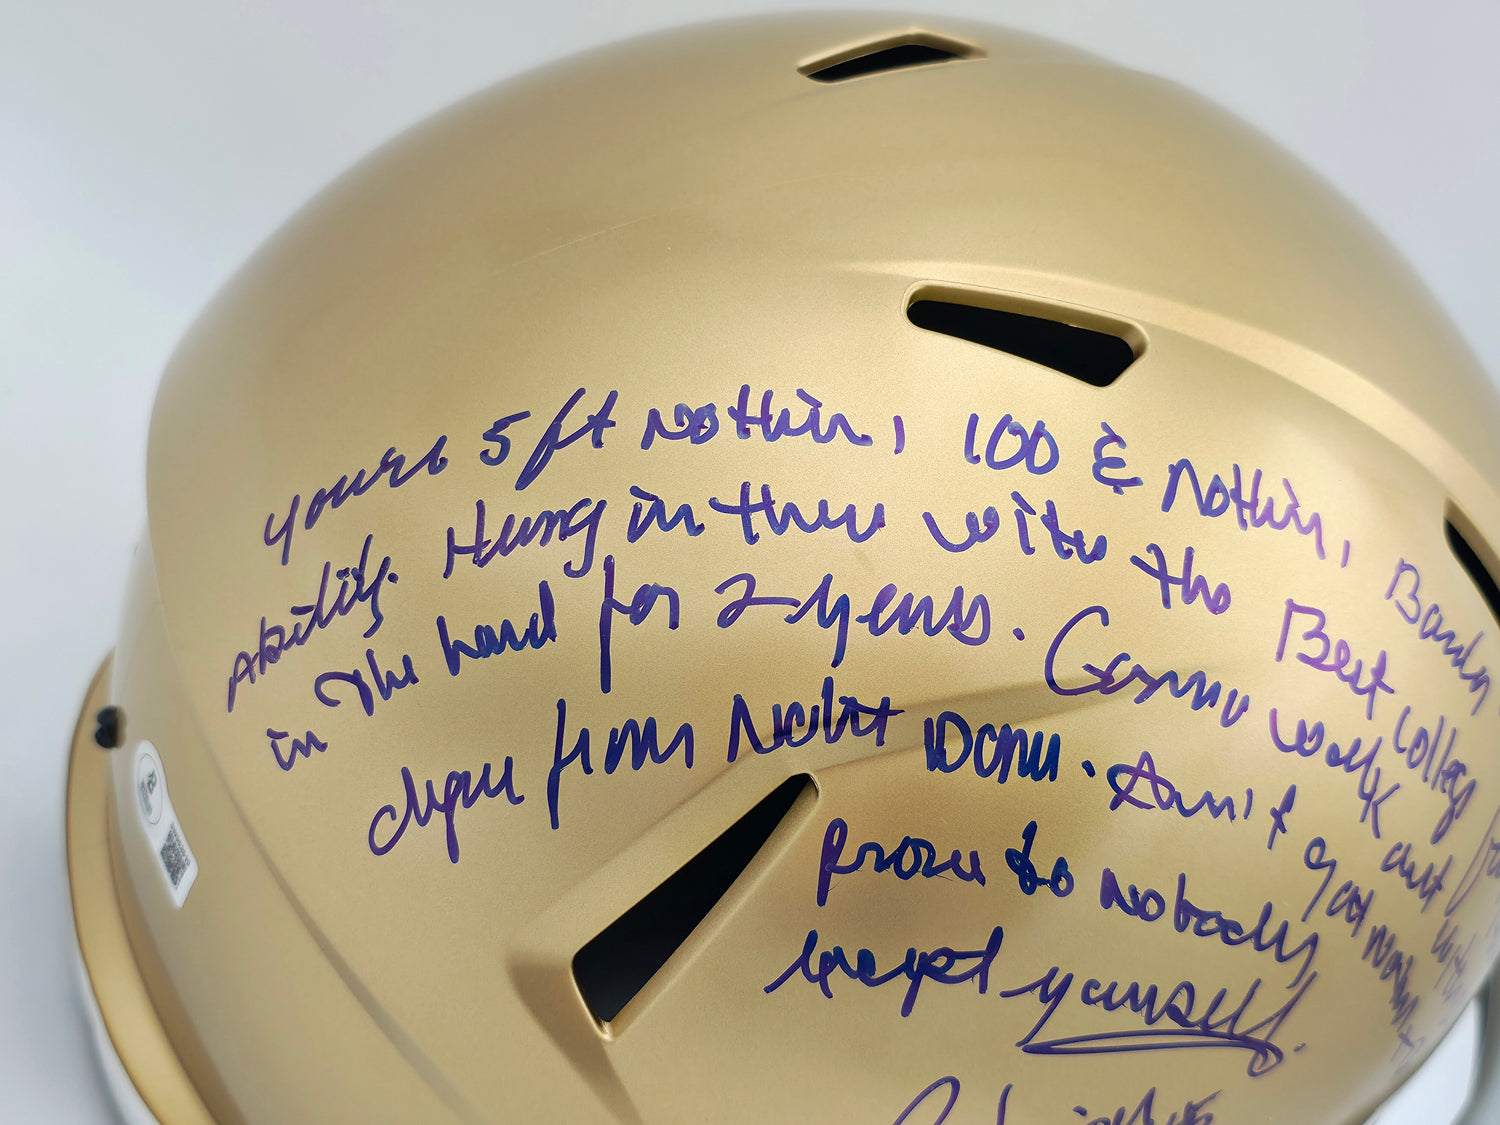 youre 5 ft nothin, 100 & nothin, Barely
Ability. Hung in there with the Best college
in The land for 2 years. Gonna walk out with
degree from Notre Dame. Ain't got nothin to
prove to nobody,
except yourself.